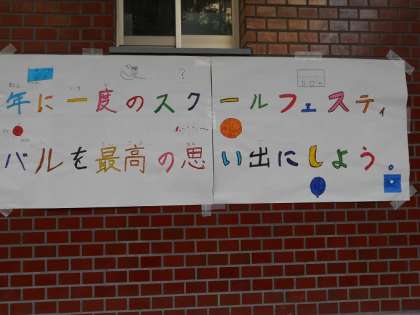 年に一度のスクールフェスティ
バルを最高の思い出にしよう。